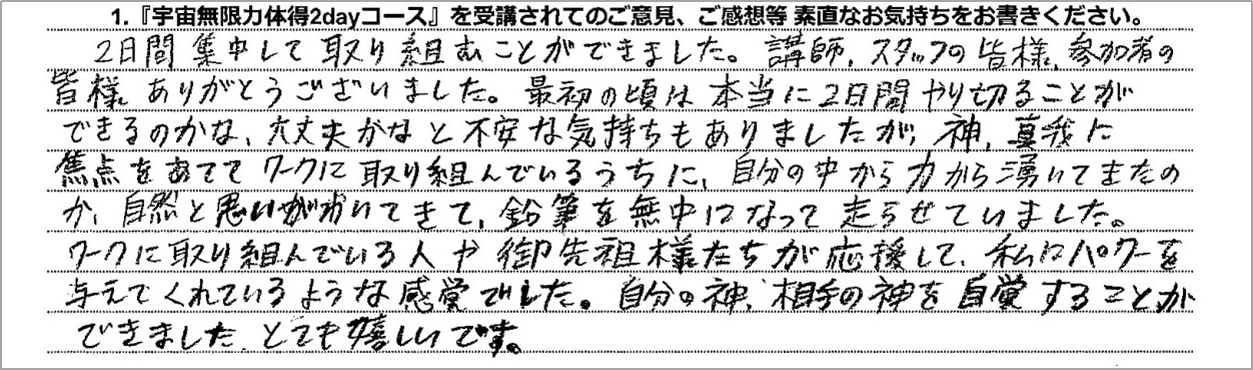 1.『宇宙無限力体得2dayコース』を受講されてのご意見、ご感想等 素直なお気持ちをお書きください。
2日間 集中して 取り組むことができました。講師、スタッフの皆様、参加者の
皆様 ありがとうございました。最初の頃は 本当に2日間やり切ることが
できるのかな、大丈夫かなと不安な気持ちもありましたが、神、真我に
焦点をあてて ワークに取り組んでいるうちに、自分の中から力から湧いてきたの
か、自然と思いがわいてきて、鉛筆を無中になって走らせていました。
ワークに取り組んでいる人や御先祖様たちが応援して、私にパワーを
与えてくれているような感覚でした。自分の神、相手の神を自覚することが
できました。とても嬉しいです。